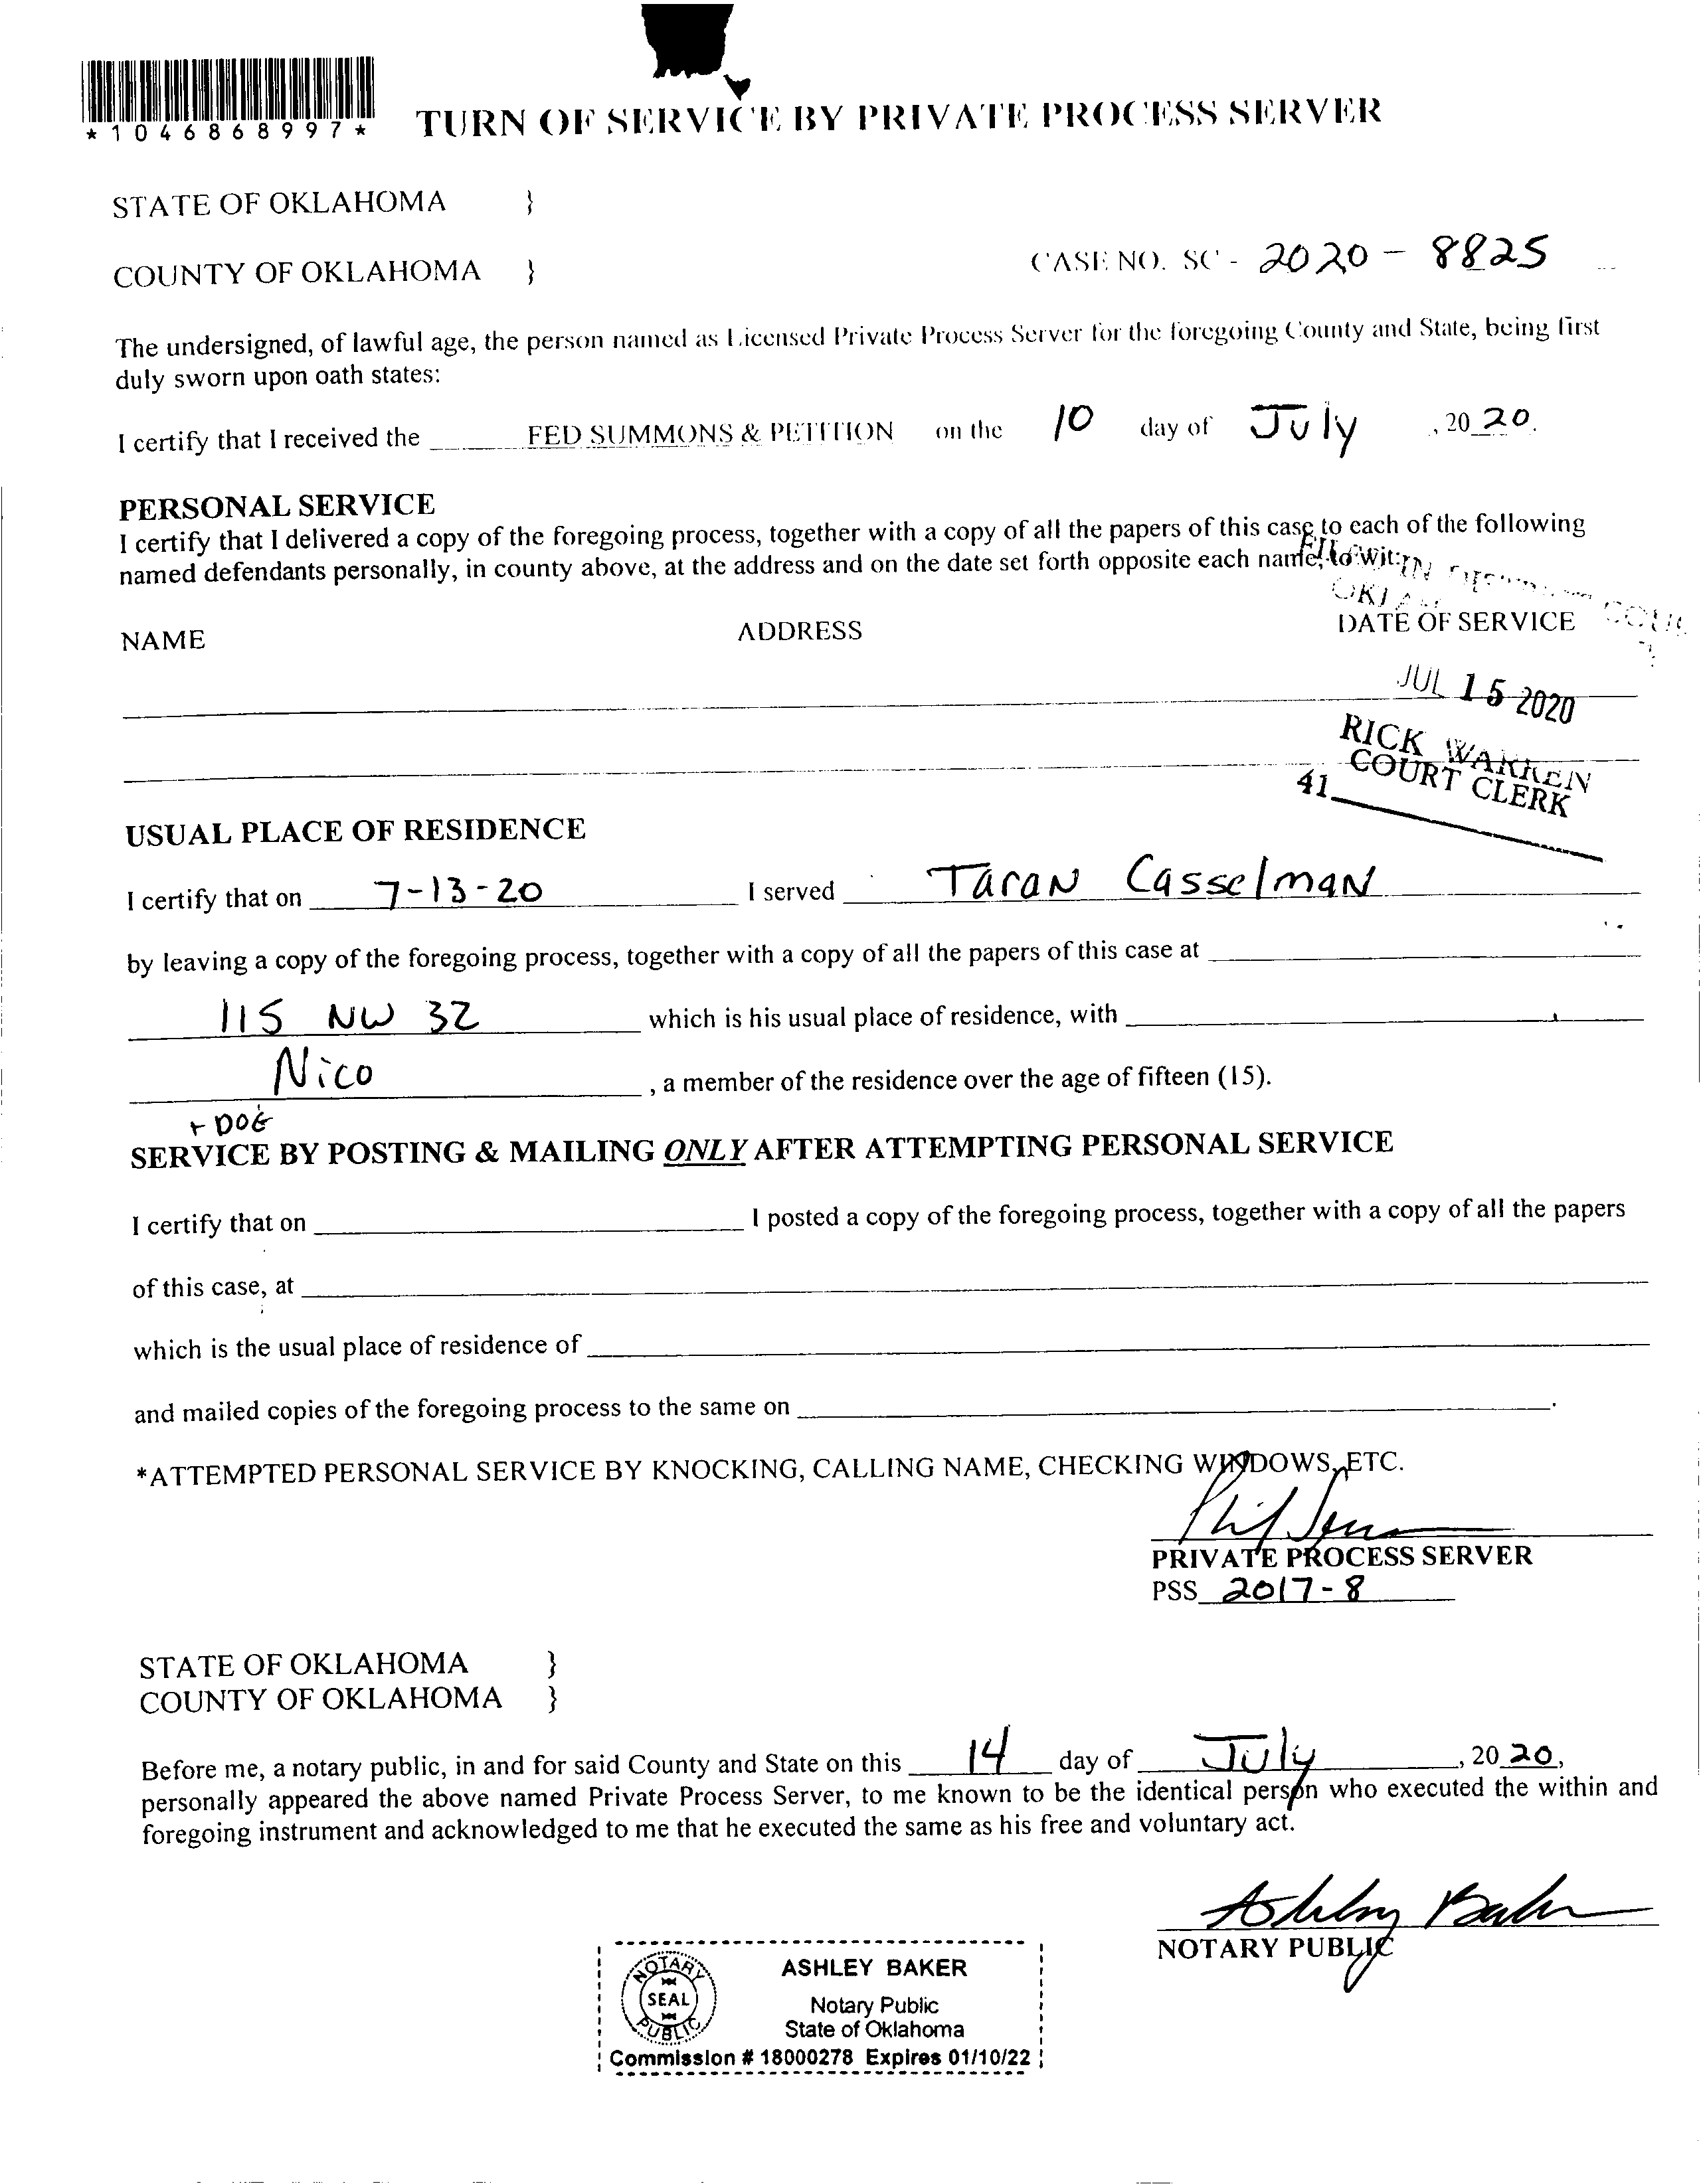 *1046868997*
TURN OF SERVICE BY PRIVATE PROCESS SERVER
STATE OF OKLAHOMA }
COUNTY OF OKLAHOMA } CASE NO. SC - 2020 - 8825
The undersigned, of lawful age, the person named as Licensed Private Process Server for the foregoing County and State, being first
duly sworn upon oath states:
I certify that I received the FED SUMMONS & PETITION on the 10 day of July , 20 20.
PERSONAL SERVICE
I certify that I delivered a copy of the foregoing process, together with a copy of all the papers of this case to each of the following
named defendants personally, in county above, at the address and on the date set forth opposite each name, to wit:
NAME ADDRESS DATE OF SERVICE
JUL 15 2020
RICK WARREN
COURT CLERK
41
USUAL PLACE OF RESIDENCE
I certify that on 7-13-20 I served Taran Casselman
by leaving a copy of the foregoing process, together with a copy of all the papers of this case at
115 NW 32 which is his usual place of residence, with
Nico , a member of the residence over the age of fifteen (15).
+ DOE
SERVICE BY POSTING & MAILING ONLY AFTER ATTEMPTING PERSONAL SERVICE
I certify that on I posted a copy of the foregoing process, together with a copy of all the papers
of this case, at
which is the usual place of residence of
and mailed copies of the foregoing process to the same on .
*ATTEMPTED PERSONAL SERVICE BY KNOCKING, CALLING NAME, CHECKING WINDOWS, ETC.
PRIVATE PROCESS SERVER
PSS 2017-8
STATE OF OKLAHOMA }
COUNTY OF OKLAHOMA }
Before me, a notary public, in and for said County and State on this 14 day of July , 20 20,
personally appeared the above named Private Process Server, to me known to be the identical person who executed the within and
foregoing instrument and acknowledged to me that he executed the same as his free and voluntary act.
Ashley Baker
NOTARY PUBLIC
NOTARY SEAL PUBLIC
ASHLEY BAKER
Notary Public
State of Oklahoma
Commission # 18000278 Expires 01/10/22